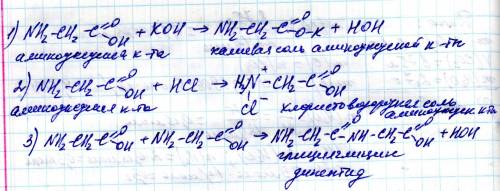 1) NH₂-CH₂-C(=O)-OH + KOH → NH₂-CH₂-C(=O)-O-K + HOH
аминоуксусная к-та калиевая соль аминоуксусной к-ты
2) NH₂-CH₂-C(=O)-OH + HCl → H₃N⁺-CH₂-C(=O)-OH
аминоуксусная к-та Cl⁻ хлористоводородная соль
аминоуксусн к-та
3) NH₂-CH₂-C(=O)-OH + NH₂-CH₂-C(=O)-OH → NH₂-CH₂-C(=O)-NH-CH₂-C(=O)-OH + HOH
глицилглицин
дипептид